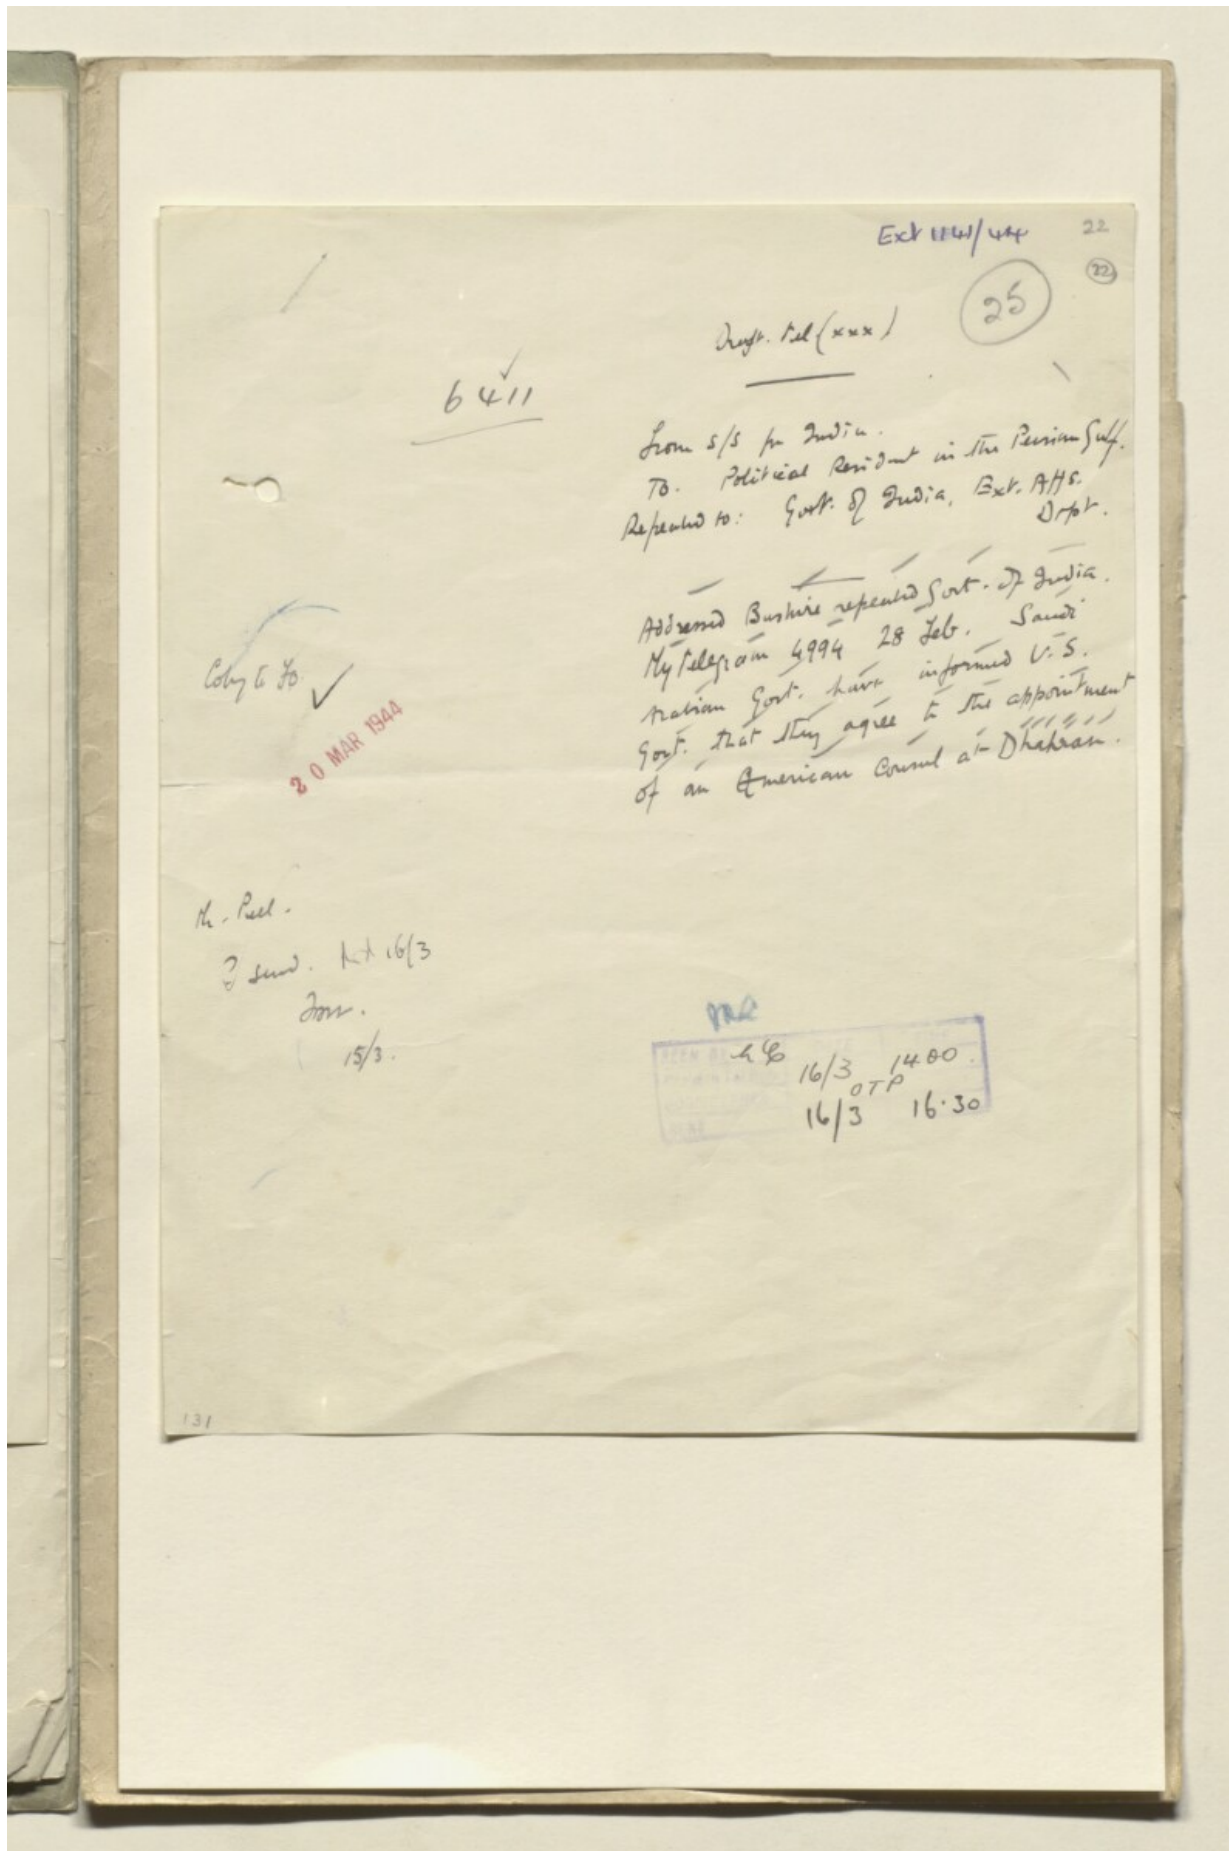 Ext 1141/44
22
22
25
Draft. Tel (xxx)
6411
From S/S for India.
To. Political Resident in the Persian Gulf.
Repeated to: Govt. of India, Ext. Affs.
Dept.
Addressed Bushire repeated Govt. of India.
My telegram 4994 28 Feb. Saudi
Arabian Govt. have informed U.S.
Govt. that they agree to the appointment
of an American Consul at Dhahran.
Copy to FO.
20 MAR 1944
Mr. Peel.
? send. 16/3
15/3.
16/3 14.00.
OTP
16/3 16.30
131